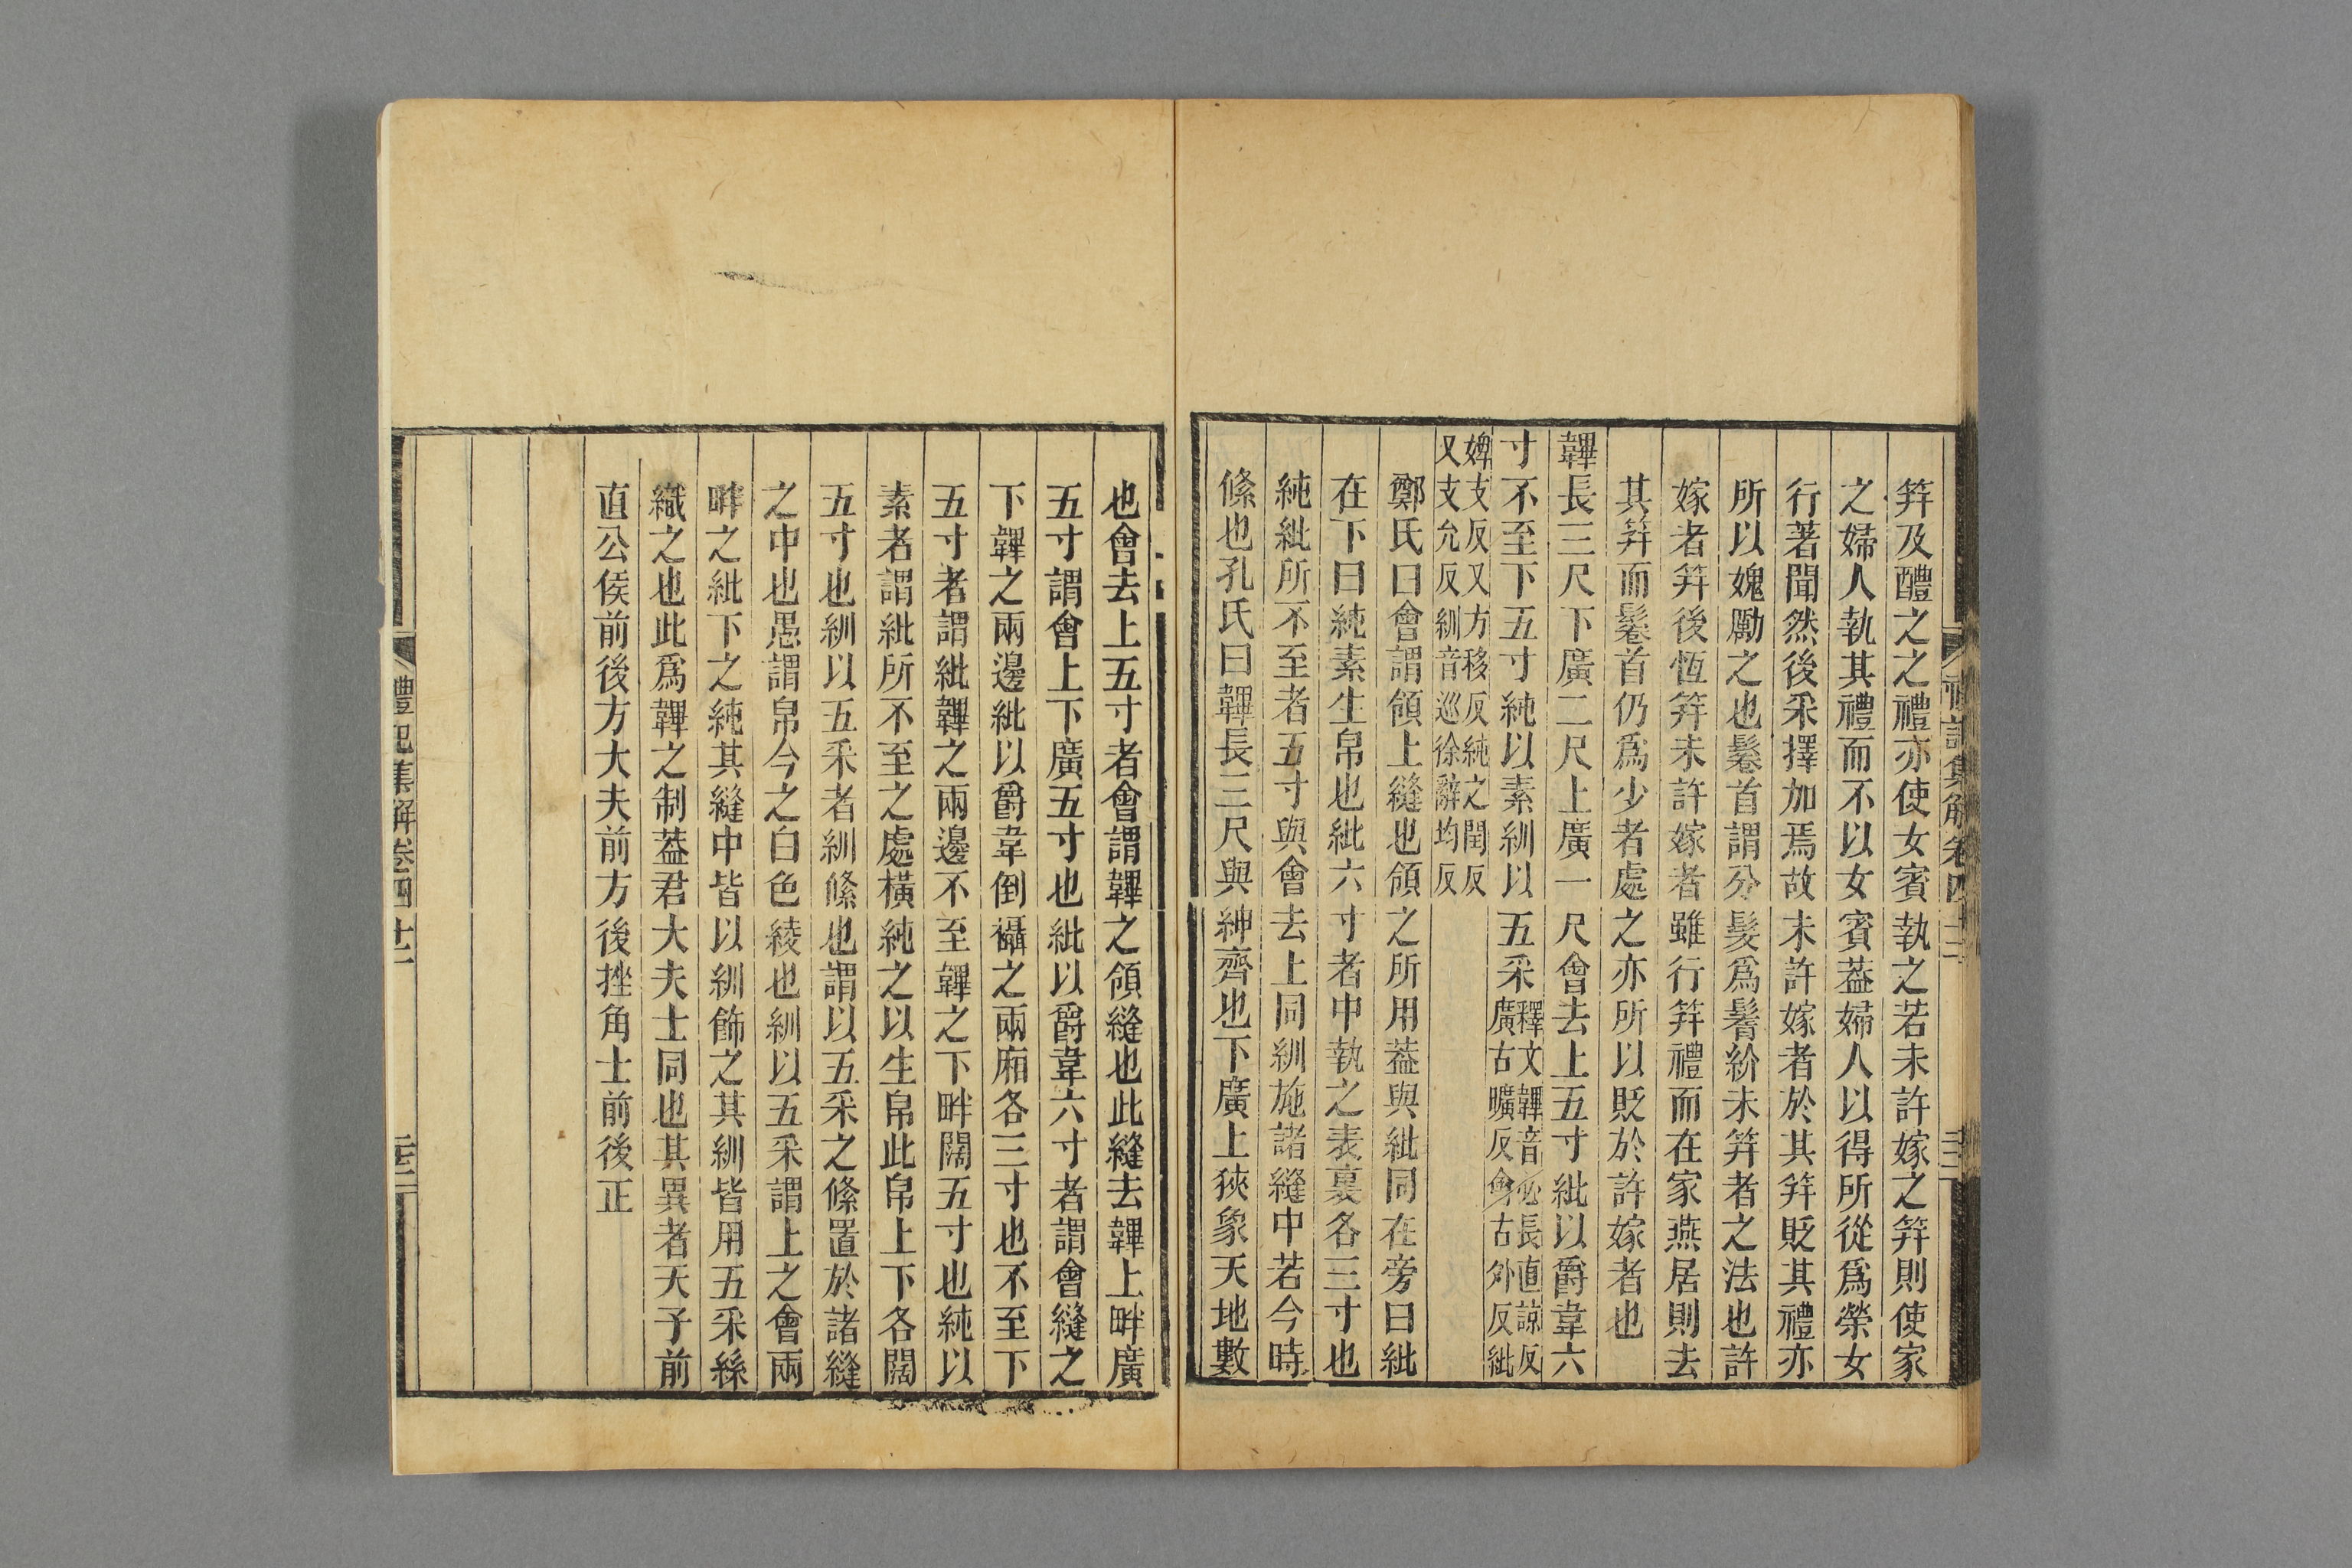 笄及醴之之禮亦使女賓執之若未許嫁之笄則使家
之婦人執其禮而不以女賓葢婦人以得所從爲榮女
行著聞然後采擇加焉故未許嫁者於其笄貶其禮亦
所以媿勵之也鬈首謂分髮爲鬌紒未笄者之法也許
嫁者笄後恆笄未許嫁者雖行笄禮而在家燕居則去
其笄而鬈首仍爲少者處之亦所以貶於許嫁者也
韠長三尺下廣二尺上廣一尺會去上五寸紕以爵韋六
寸不至下五寸純以素紃以五采釋文韠音必長直諒反
廣古曠反會古外反紕
婢支反又方移反純之閏反
又支允反紃音巡徐辭均反
鄭氏曰會謂領上縫也領之所用葢與紕同在旁曰紕
在下曰純素生帛也紕六寸者中執之表裏各三寸也
純紕所不至者五寸與會去上同紃施諸縫中若今時
絛也孔氏曰韠長三尺與紳齊也下廣上狹象天地數
也會去上五寸者會謂韠之領縫也此縫去韠上畔廣
五寸謂會上下廣五寸也紕以爵韋六寸者謂會縫之
下韠之兩邊紕以爵韋倒襵之兩廂各三寸也不至下
五寸者謂紕韠之兩邊不至韠之下畔闊五寸也純以
素者謂紕所不至之處橫純之以生帛此帛上下各闊
五寸也紃以五采者紃絛也謂以五采之絛置於諸縫
之中也愚謂帛今之白色綾也紃以五采謂上之會兩
畔之紕下之純其縫中皆以紃飾之其紃皆用五采絲
織之也此爲韠之制葢君大夫士同也其異者天子前
直公侯前後方大夫前方後挫角士前後正
禮記集解卷四十二